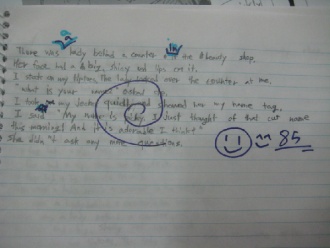 There was lady behind a counter in the beauty shop.
Her face had a big, shiny red lips on it.
I on my tiptoes. The lady over the counter at me.
"what is your name
I my and showed him my name tag.
I said "My name is I just thought of that cut name
this morning! And it's adorable I think!"
She didn't ask any more questions.
85